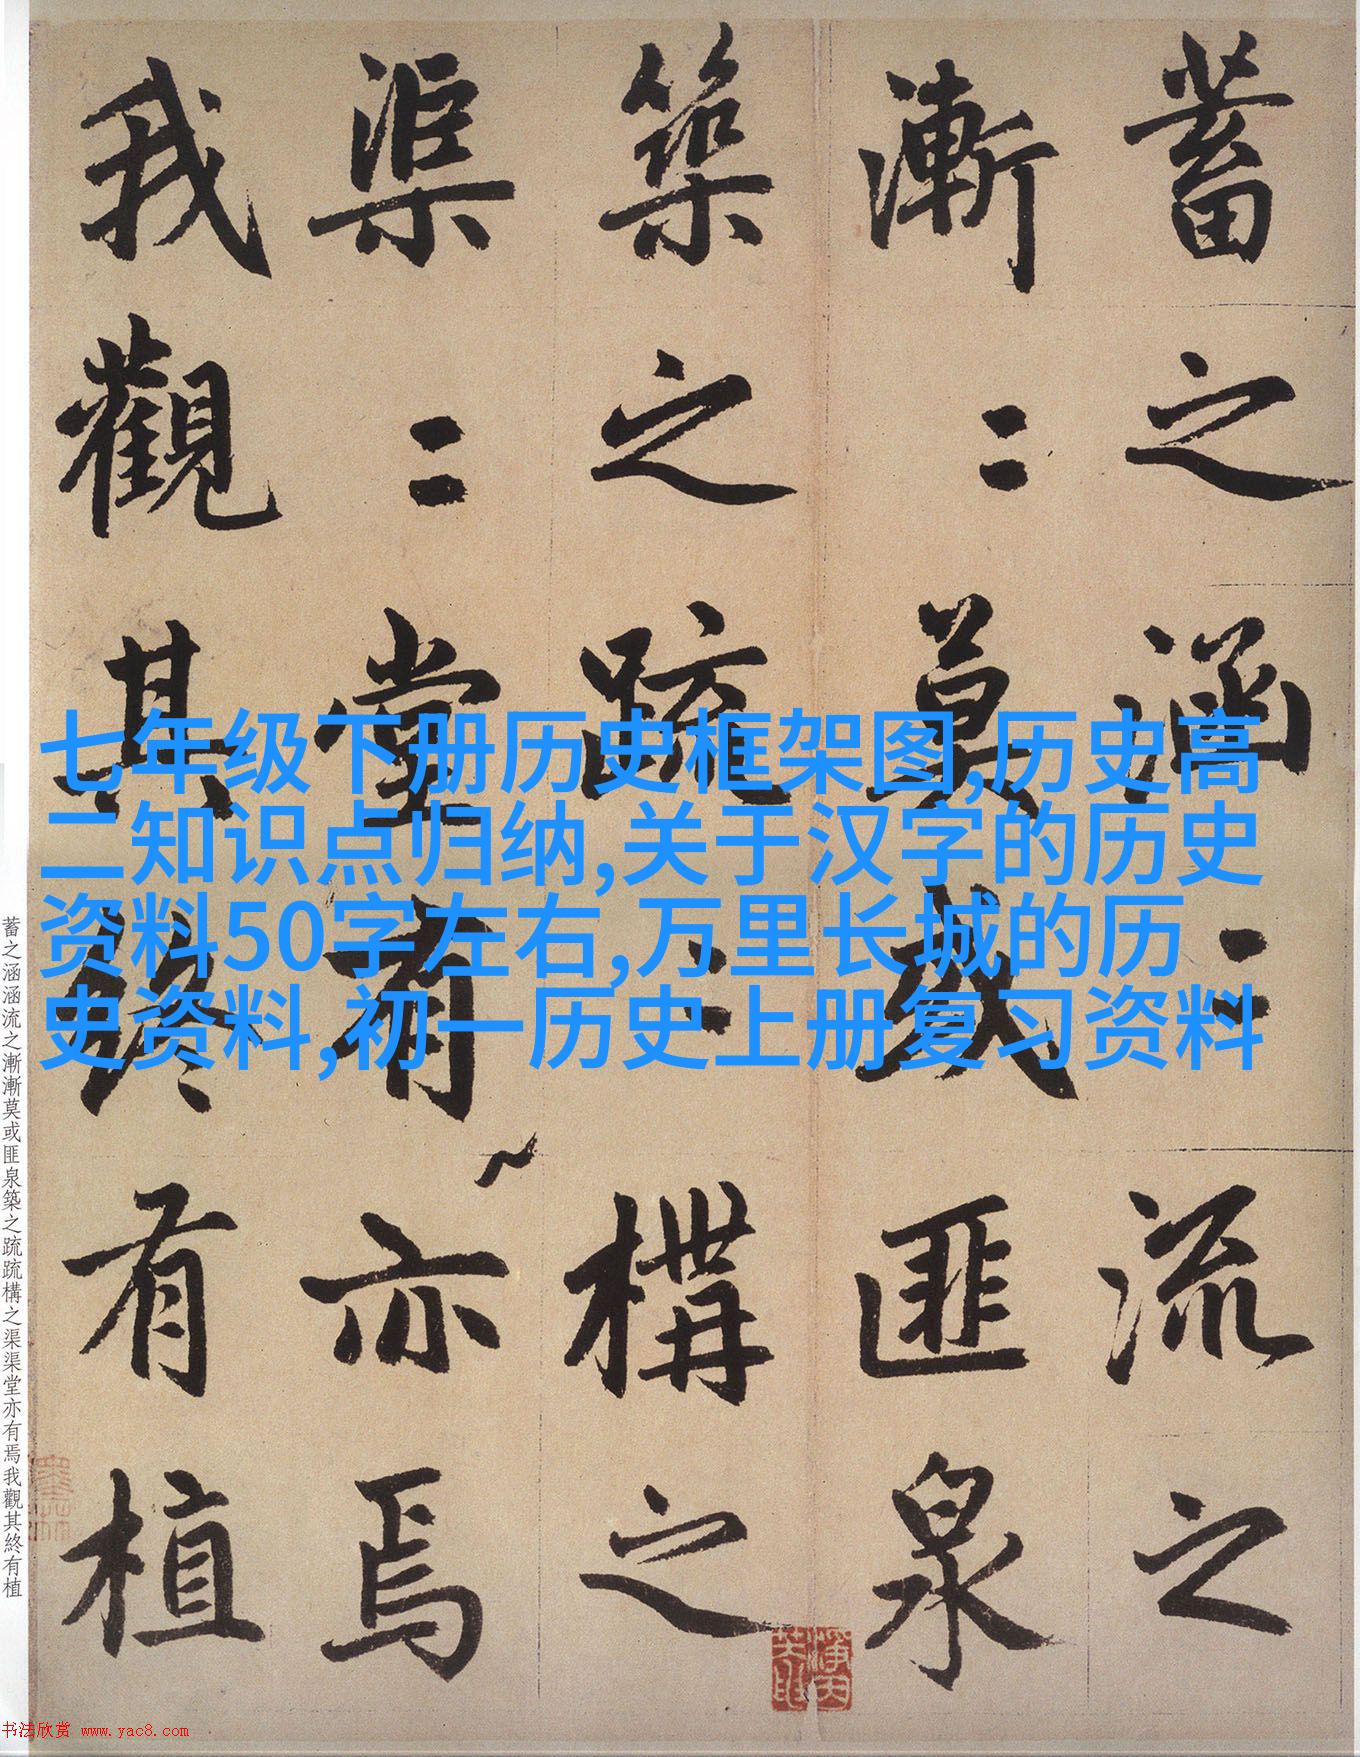 蓄之涵〻流之
漸〻莫或匪泉
築之疏〻構之
渠〻堂有亦焉
我觀其終有植
七年级下册历史框架图,历史高
二知识点归纳,关于汉字的历史
资料50字左右,万里长城的历
史资料,初一历史上册复习资料
蓄之涵涵流之漸漸莫或匪泉築之疏疏構之渠渠堂亦有焉我觀其終有植
书法欣赏 www.yac8.com